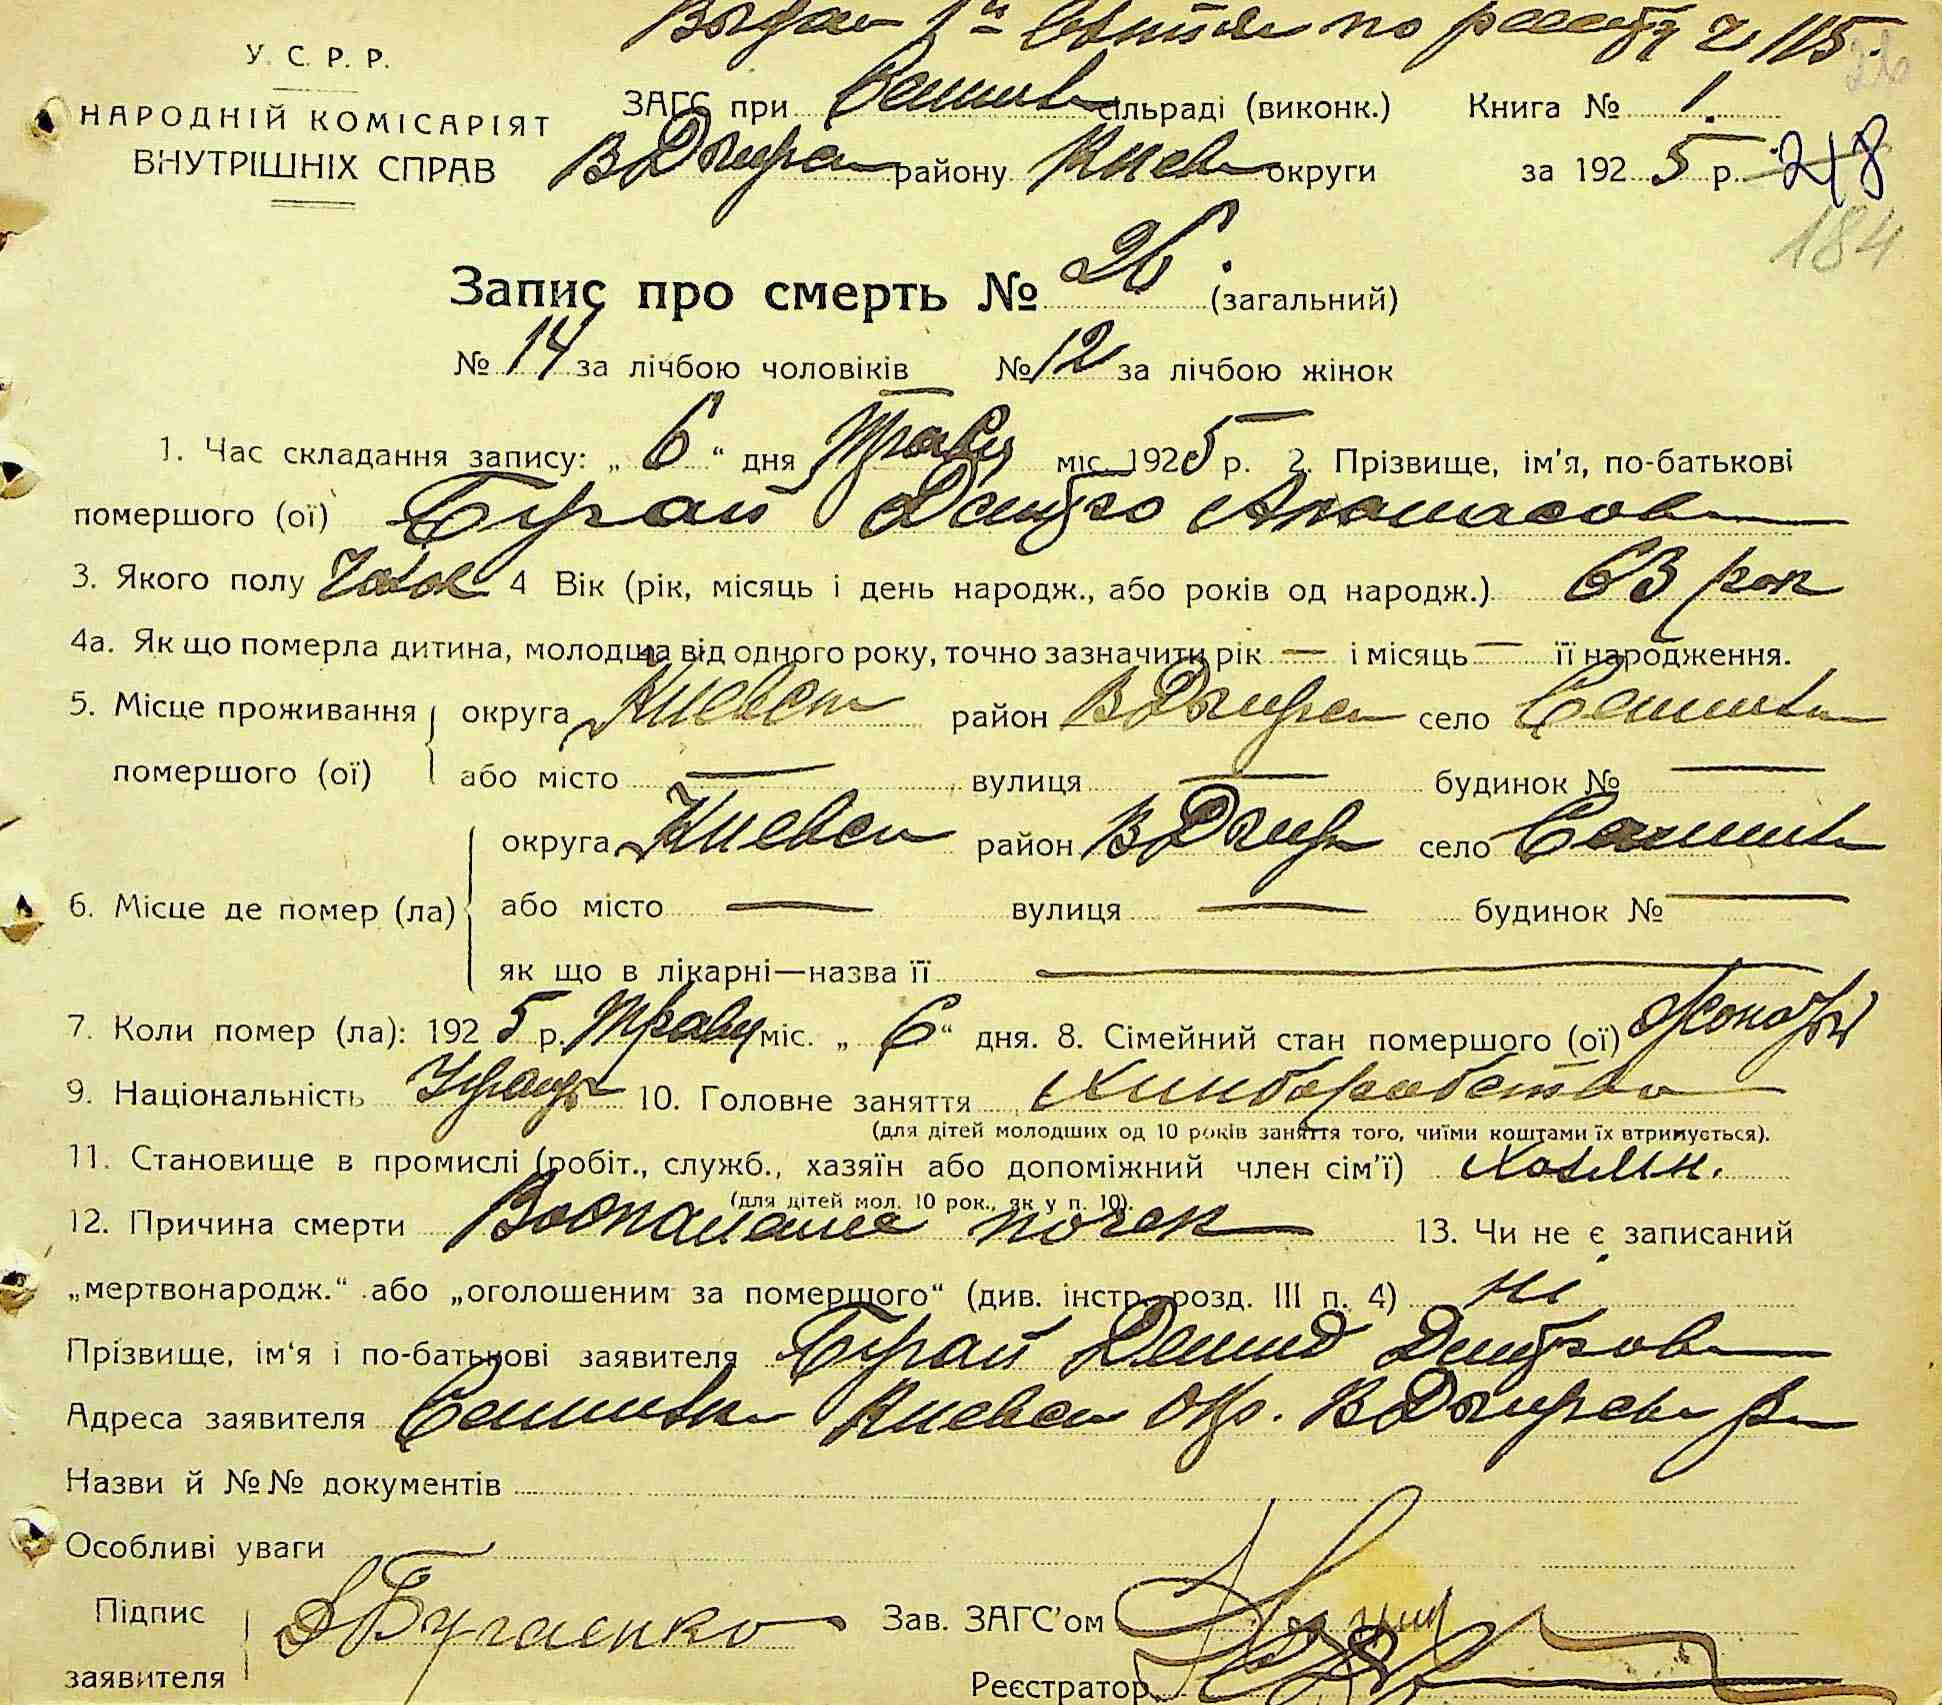 по реестр № 115.
У. С. Р. Р.
НАРОДНІЙ КОМІСАРІЯТ
ВНУТРІШНІХ СПРАВ
ЗАГС при сільраді (виконк.) Книга № 1.
ВДымер району Киев округи за 1925 р. 218
184
Запис про смерть № 26. (загальний)
№ 14 за лічбою чоловіків № 12 за лічбою жінок
1. Час складання запису: „ 6 “ дня Травн міс. 1925 р. 2. Прізвище, ім'я, по-батькові
помершого (ої) Бугай Дмитро Апанасов
3. Якого полу 4 Вік (рік, місяць і день народж., або років од народж.) 63 рок
4а. Як що померла дитина, молодша від одного року, точно зазначити рік — і місяць — її народження.
5. Місце проживання округа Киевск район ВДымер село
помершого (ої) або місто — вулиця — будинок № —
округа Киевск район ВДымер село
6. Місце де помер (ла) або місто — вулиця — будинок № —
як що в лікарні—назва її —
7. Коли помер (ла): 1925 р. Травн міс. „ 6 “ дня. 8. Сімейний стан помершого (ої)
9. Національність Украј 10. Головне заняття Хлиборобство
(для дітей молодших од 10 років заняття того, чиїми коштами їх втримується).
11. Становище в промислі (робіт., служб., хазяїн або допоміжний член сім'ї) Хозяин.
(для дітей мол. 10 рок., як у п. 10).
12. Причина смерти Воспаление почек 13. Чи не є записаний
„мертвонародж.“ або „оголошеним за помершого“ (див. інстр. розд. III п. 4) ні
Прізвище, ім'я і по-батькові заявителя Бугай Демид Дмитров
Адреса заявителя Киевск Окр. ВДымерск р
Назви й №№ документів
Особливі уваги
Підпис Д Бугаенко Зав. ЗАГС'ом
заявителя Реєстратор